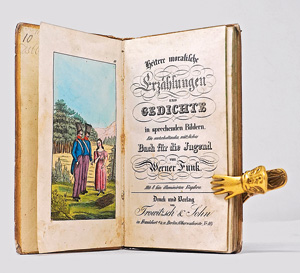 10
Heitere moralische
Erzählungen
UND
GEDICHTE
in sprechenden Bildern.
Ein unterhaltendes nützliches
Buch für die Jugend
von
Werner Funk
Mit 8 fein illuminirten Kupfern.
Druck und Verlag
Trowitzsch & Sohn
in Frankfurt a/o u. Berlin,